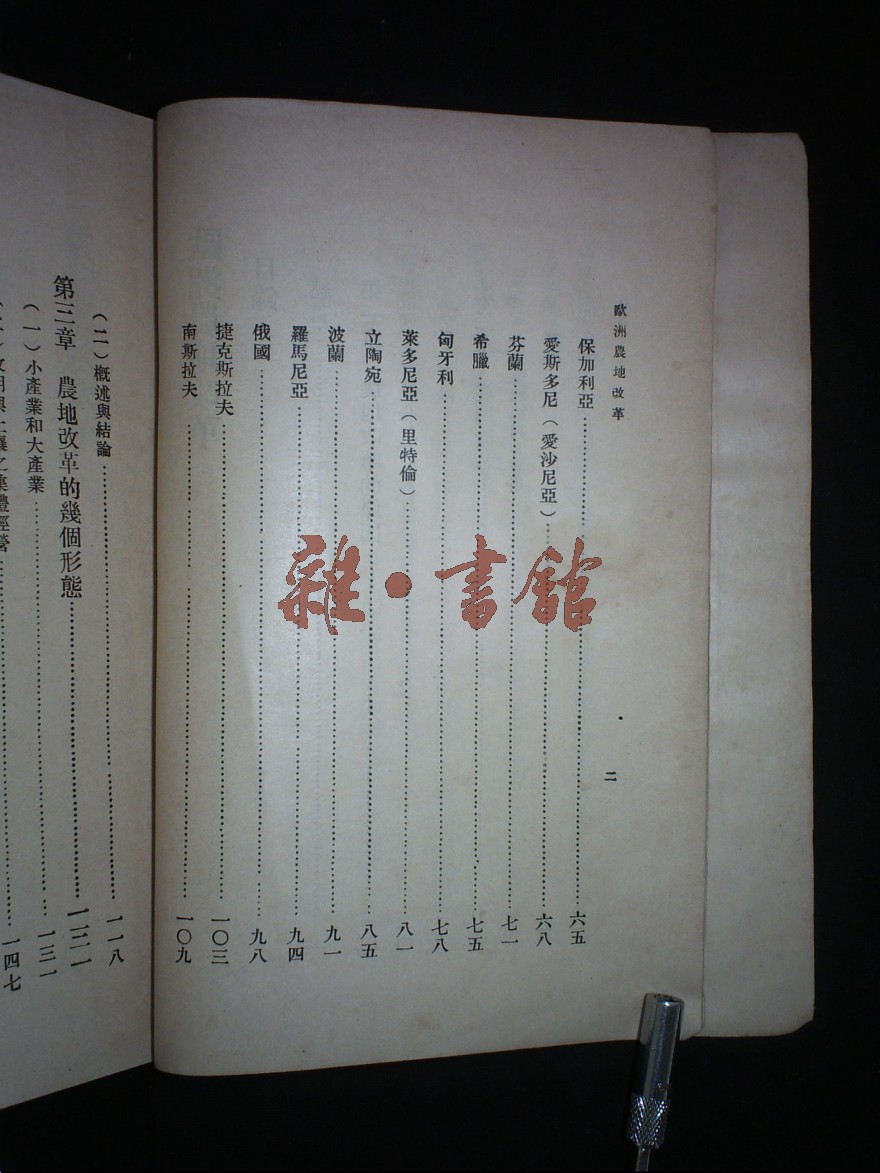 歐洲農地改革
二
保加利亞……六五
愛斯多尼(愛沙尼亞)……六八
芬蘭……七一
希臘……七五
匈牙利……七八
萊多尼亞(里特倫)……八一
立陶宛……八五
波蘭……九一
羅馬尼亞……九四
俄國……九八
捷克斯拉夫……一〇三
南斯拉夫……一〇九
(二)概述與結論……一一八
第三章 農地改革的幾個形態……一二一
(一)小產業和大產業……一三一
與土壤之集體經營……一四七
雜·書館